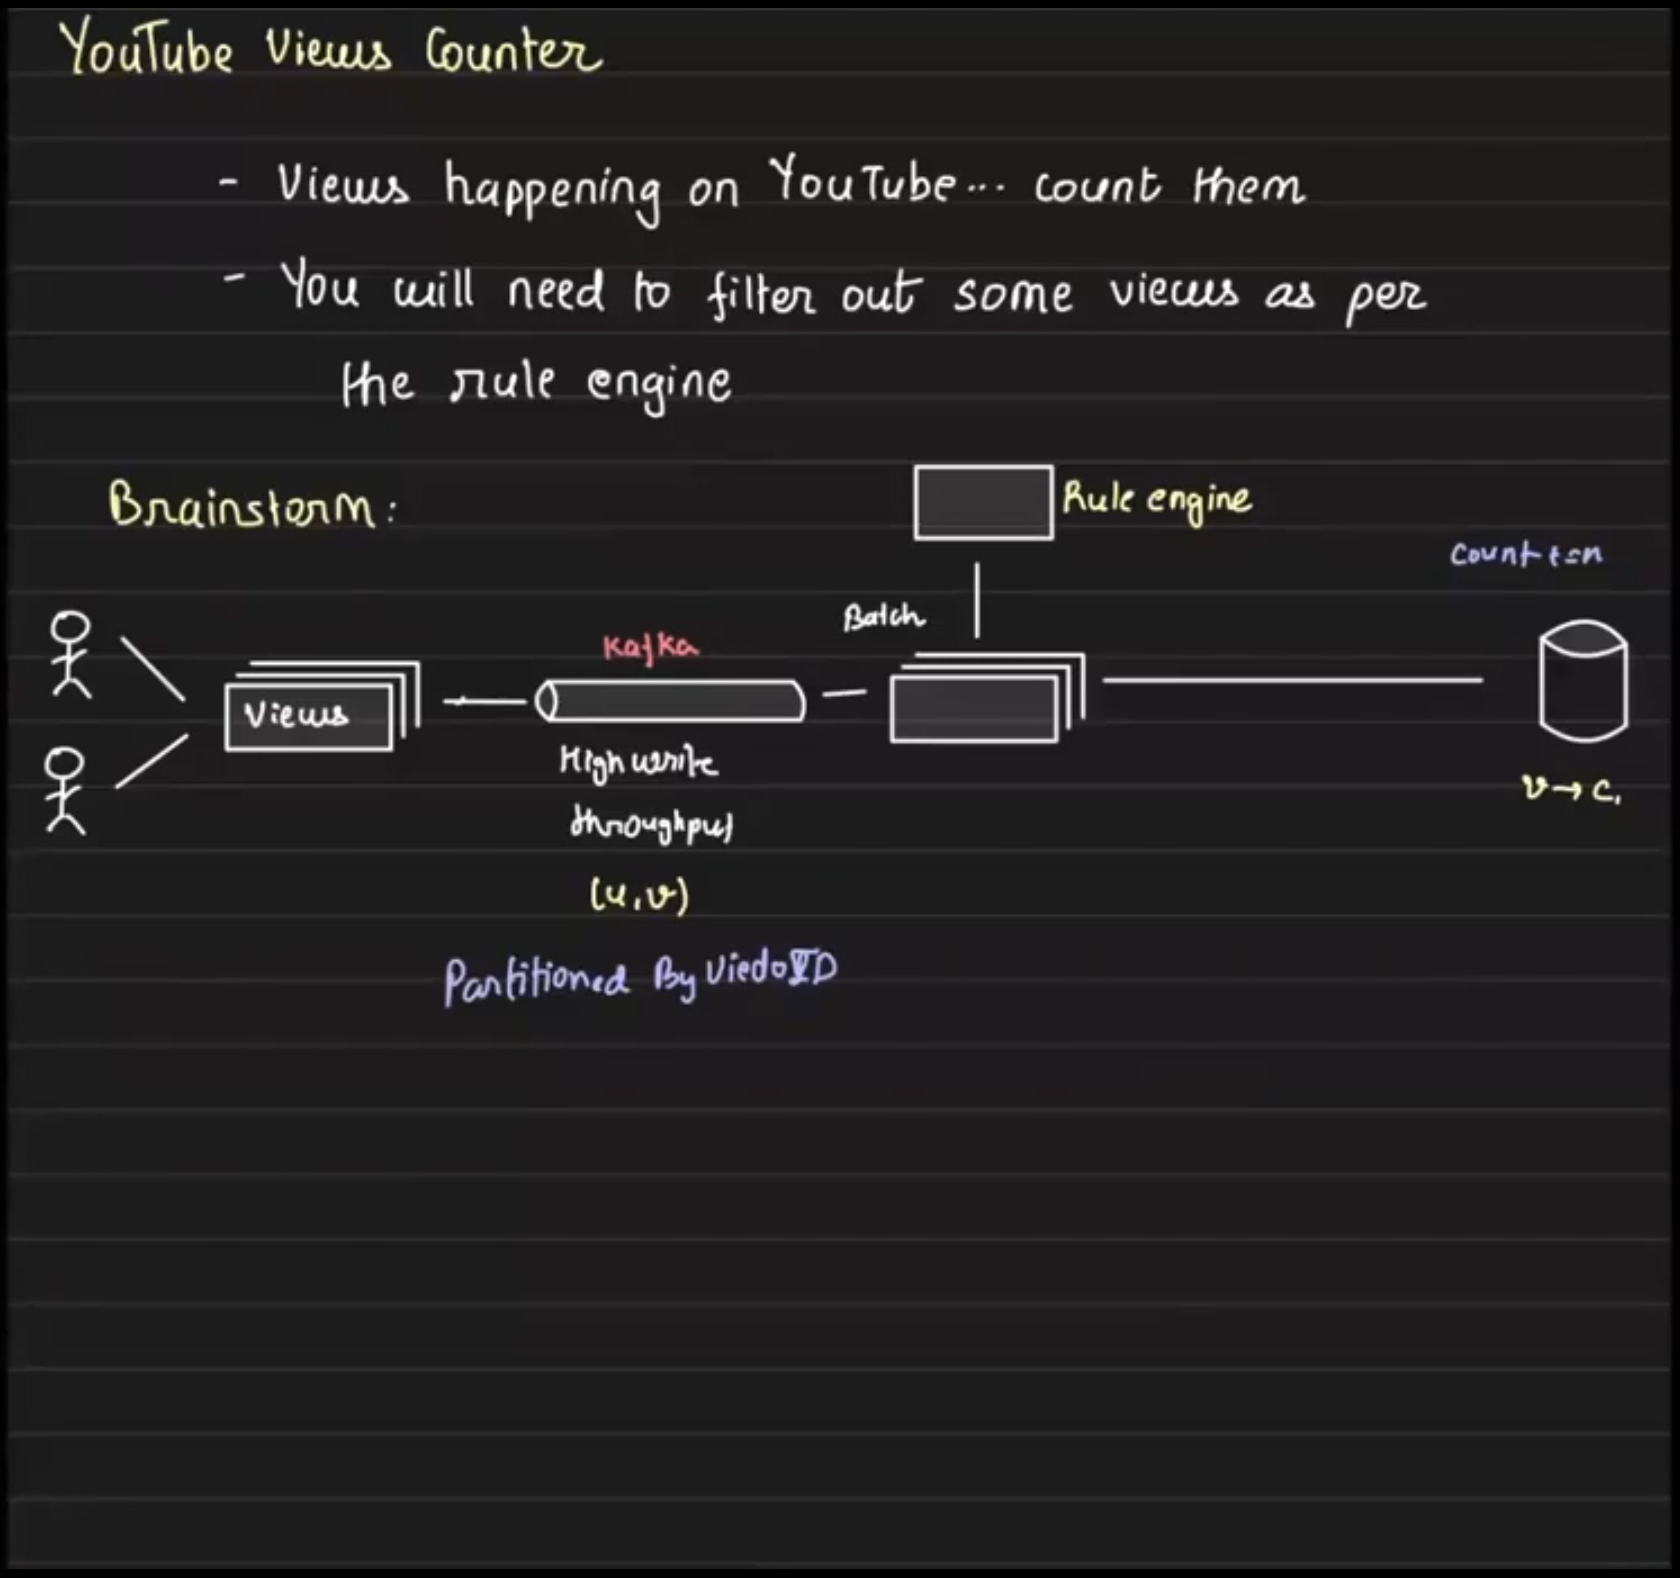 YouTube Views Counter
- Views happening on YouTube... count them
- You will need to filter out some views as per
the rule engine
Brainstorm:
Rule engine
count += n
Batch
Kafka
Views
High write
throughput
v → c,
(u,v)
Partitioned By ViedoID